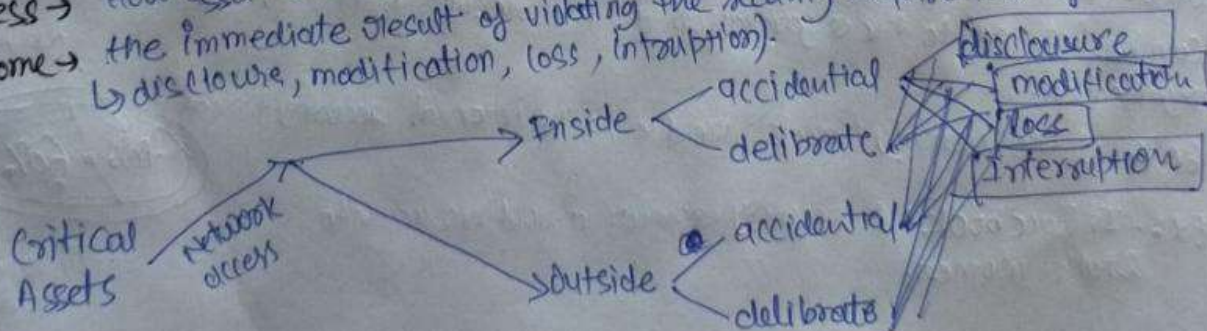 ess →
ome → the immediate result of violating the
↳ discloure, modification, loss, intruption).
Critical Assets
Network access
Inside
accidential
delibrate
Outside
accidential
delibrate
disclousure
modification
loss
interruption